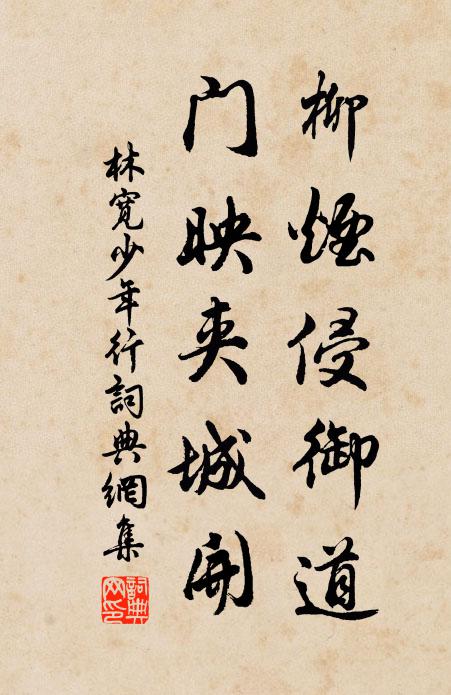 柳煙侵御道
门映夹城開
林寛少年行詞典網集
詞典
网印